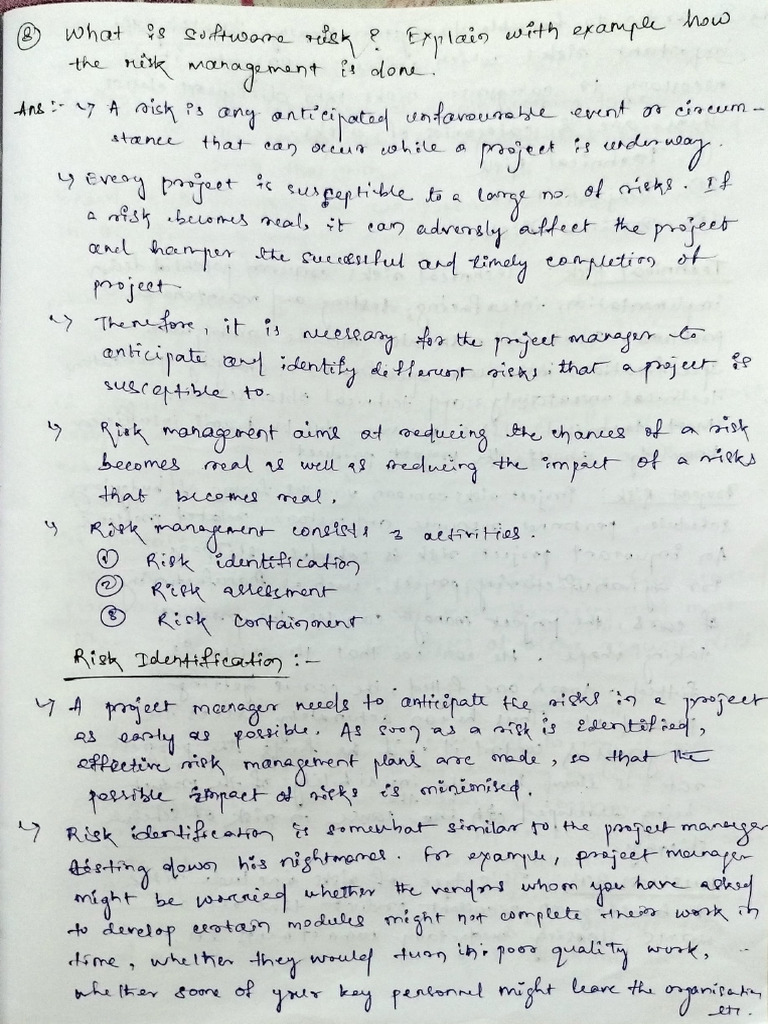 ⑧ What is software risk ? Explain with example how
the risk management is done.
Ans :- ↳ A risk is any anticipated unfavourable event or circum-
stance that can occur while a project is underway.
↳ Every project is susceptible to a large no. of risks. If
a risk becomes real, it can adversly affect the project
and hamper the successful and timely completion of
project
↳ Therefore, it is necessary for the project manager to
anticipate and identify different risks that a project is
susceptible to.
↳ Risk management aims at reducing the chances of a risk
becomes real as well as reducing the impact of a risks
that becomes real.
↳ Risk management consists 3 activities.
① Risk identification
② Risk assessment
③ Risk containment
Risk Identification :-
↳ A project manager needs to anticipate the risks in a project
as early as possible. As soon as a risk is identified,
effective risk management plans are made, so that the
possible impact of risks is minimised.
↳ Risk identification is somewhat similar to the project manager
listing down his nightmares. For example, project manager
might be worried whether the vendors whom you have asked
to develop certain modules might not complete their work in
time, whether they would turn in poor quality work,
whether some of your key personnel might leave the organisation
etc.